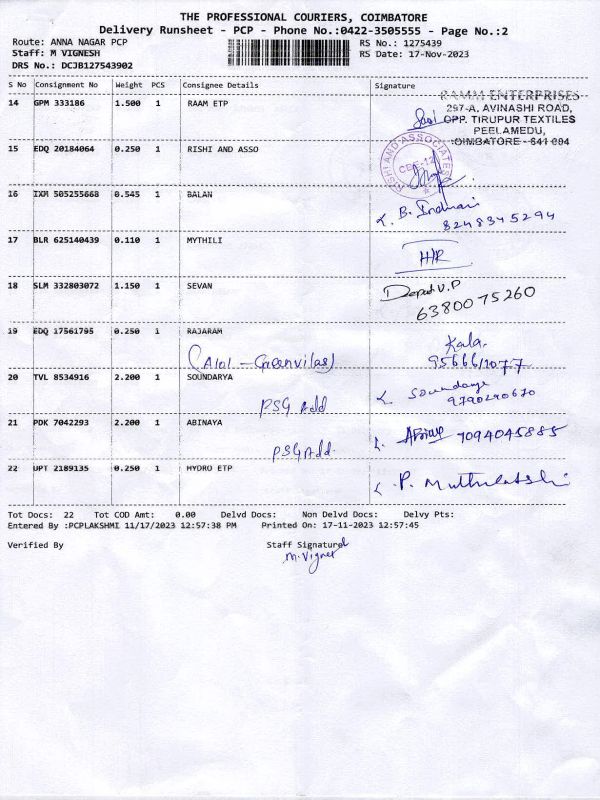 THE PROFESSIONAL COURIERS, COIMBATORE
Delivery Runsheet - PCP - Phone No.:0422-3505555 - Page No.:2
Route: ANNA NAGAR PCP RS No.: 1275439
Staff: M VIGNESH RS Date: 17-Nov-2023
DRS No.: DCJB127543902
S No Consignment No Weight PCS Consignee Details Signature
14 GPM 333186 1.500 1 RAAM ETP
RAMM ENTERPRISES
297-A, AVINASHI ROAD,
OPP. TIRUPUR TEXTILES
PEELAMEDU,
COIMBATORE - 641 004
15 EDQ 20184064 0.250 1 RISHI AND ASSO
RISHI AND ASSOCIATES
CBE-12
16 IXM 505255668 0.545 1 BALAN
B. Indhrani
8248345294
17 BLR 625140439 0.110 1 MYTHILI
H/R
18 SLM 332803072 1.150 1 SEVAN
Deepak V.P
6380075260
19 EDQ 17561795 0.250 1 RAJARAM
Kala.
(A101 - Greenvilas)
95666/1077
20 TVL 8534916 2.200 1 SOUNDARYA
Soundarya
9790290670
PSG Add
21 PDK 7042293 2.200 1 ABINAYA
Abinaya 7094045885
PSG Add.
22 UPT 2189135 0.250 1 HYDRO ETP
P. Muthulakshmi
Tot Docs: 22 Tot COD Amt: 0.00 Delvd Docs: Non Delvd Docs: Delvy Pts:
Entered By :PCPLAKSHMI 11/17/2023 12:57:38 PM Printed On: 17-11-2023 12:57:45
Verified By Staff Signature
M. Vignesh